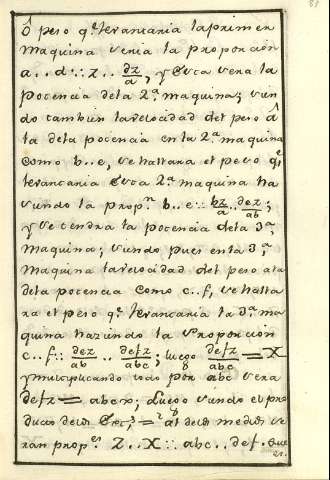 ô peso q.e levantaria la primera
maquina seria la proporcion
a..d::z..dz/a, y esta sera la
potencia de la 2.a maquina; sien
do tambien la velocidad del peso â
la dela potencia en la 2.a maquina
como b..e, se hallara el peso q.e
levantaria esta 2.a maquina ha
ciendo la prop.n b..e::dz/a..dez/ab;
y se tendra la potencia dela 3.a
maquina; siendo pues en la 3.a
maquina la velocidad del peso ala
dela potencia como c..f, se halla
ra el peso q.e levantaria la 3.a ma
quina haziendo la proporcion
c..f::dez/ab..defz/abc; luego defz/abc=X
y multiplicando todo por abc sera
defz=abcx; Luego siendo el pro
ducto delos = al delos medios se
ran prop.es Z..X::abc..def.